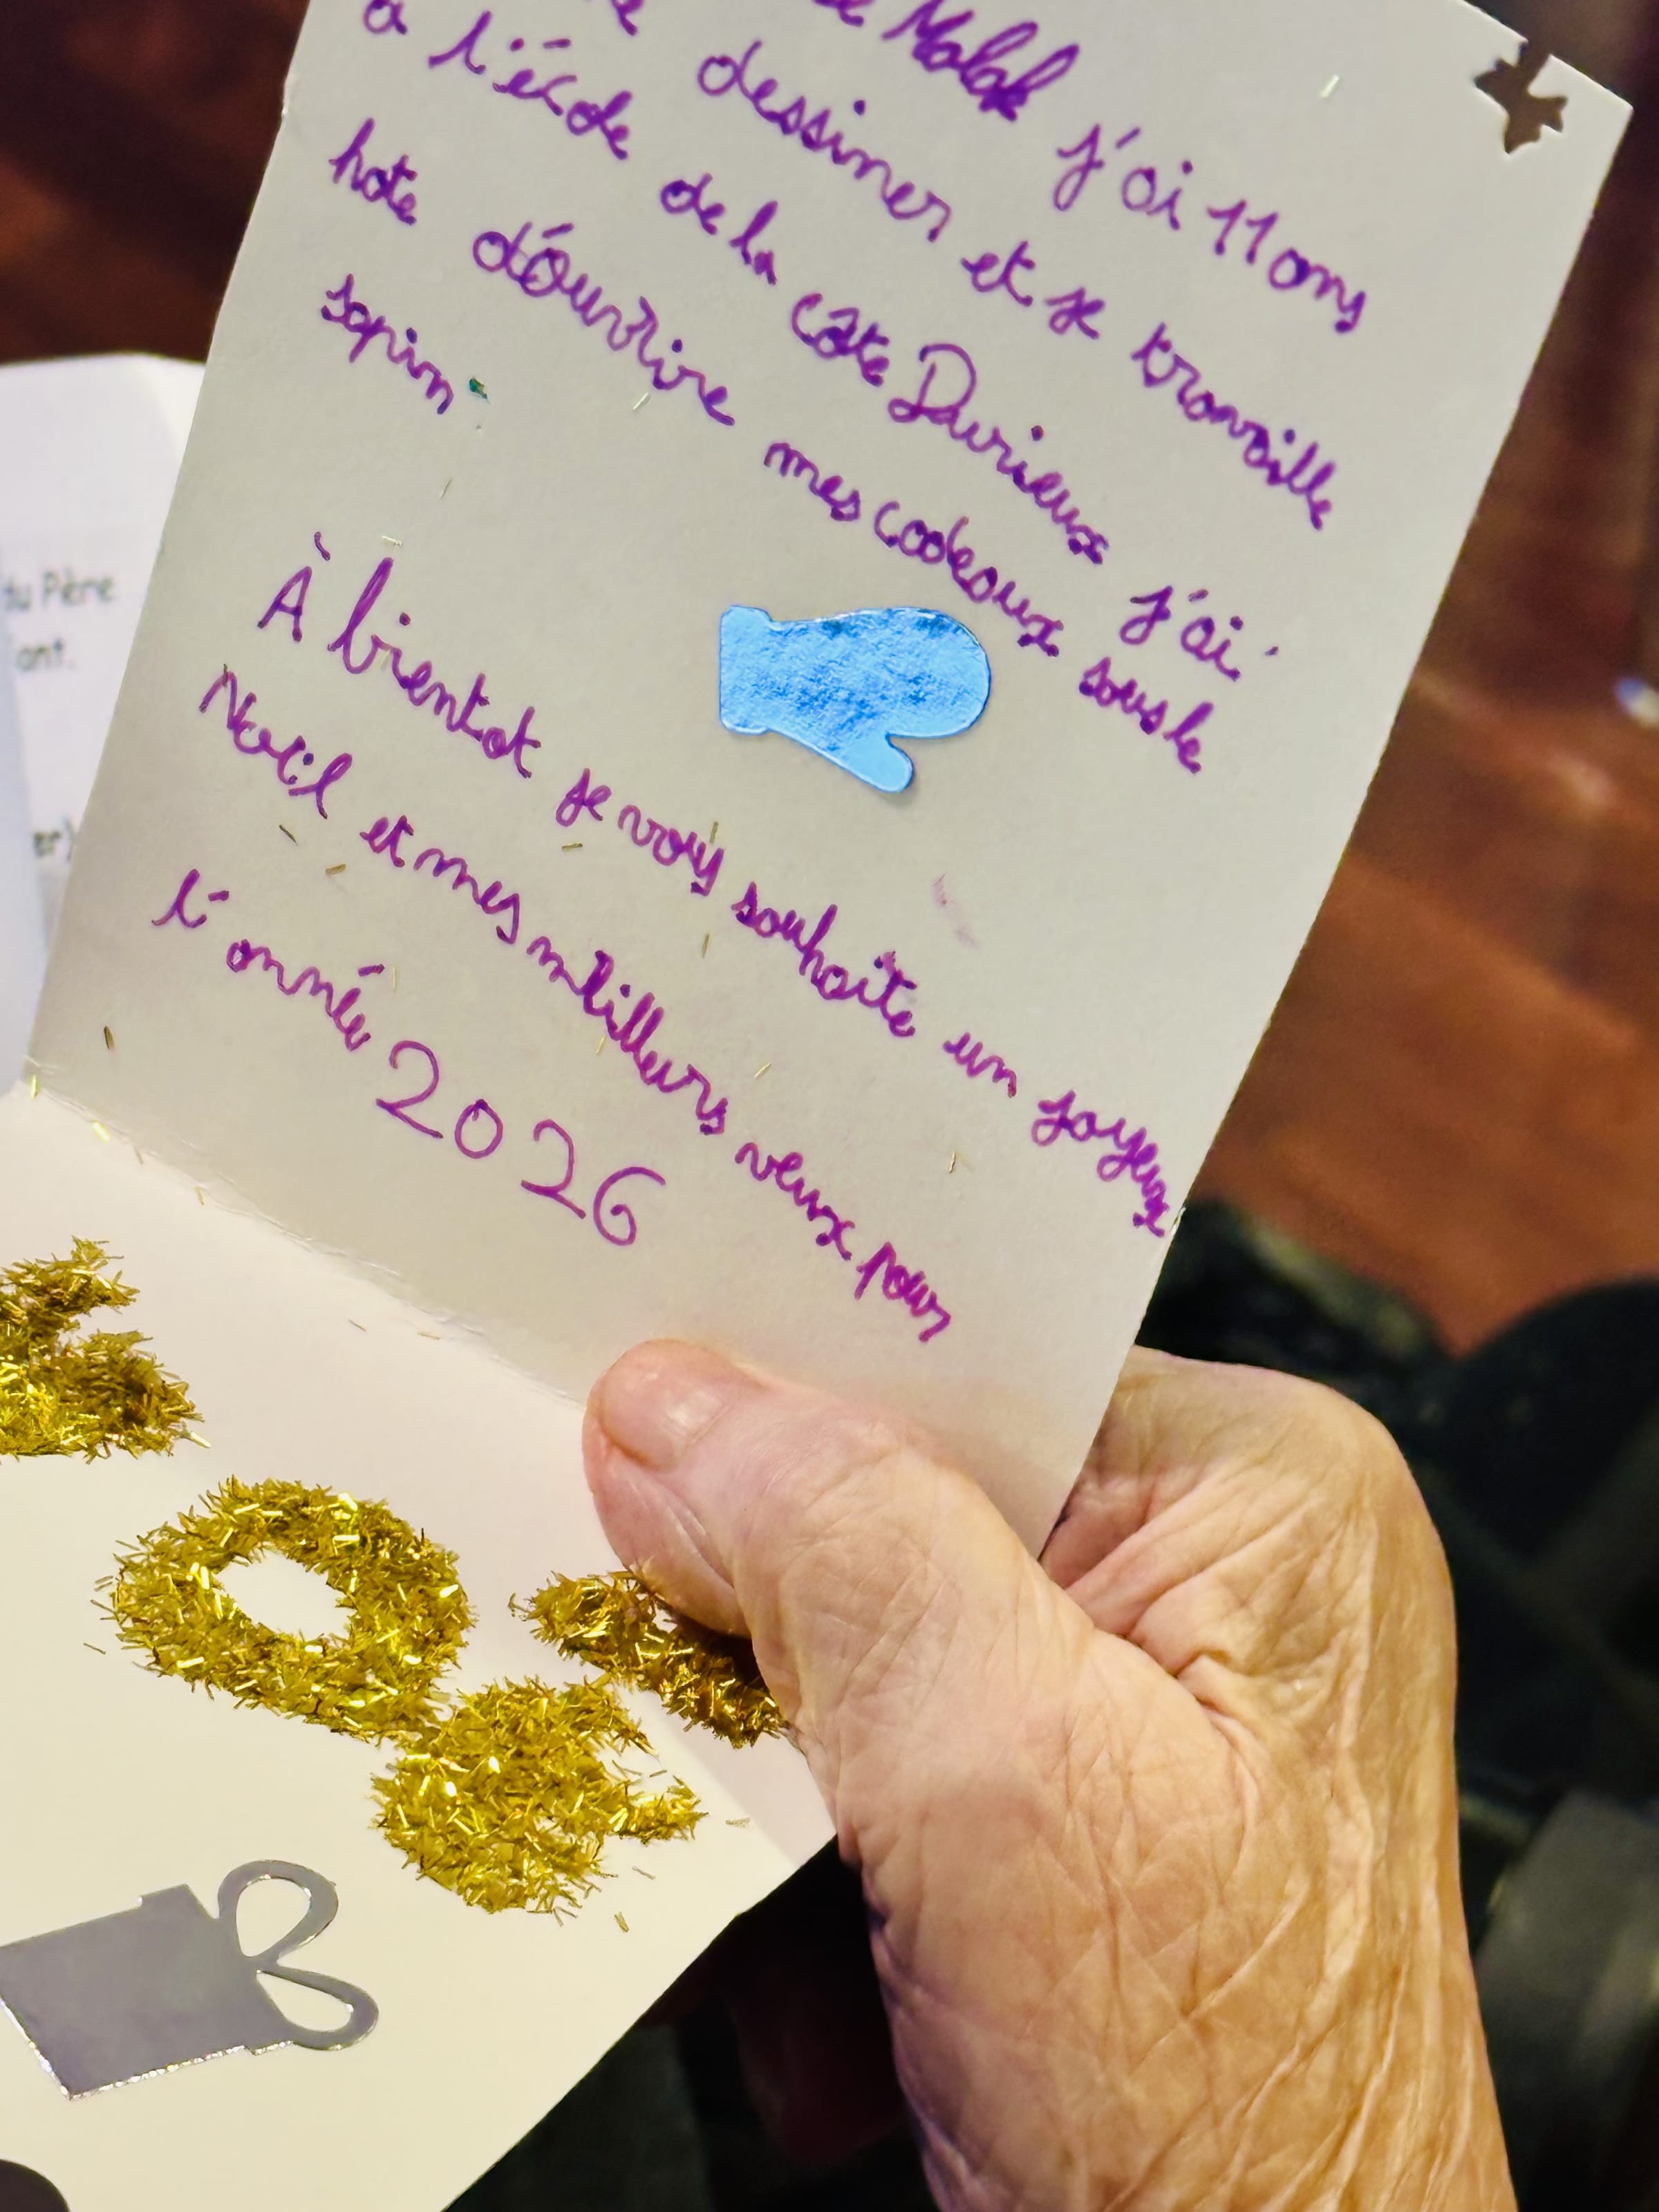 Malak j'ai 11 ans
dessiner et je travaille
à l'école de la côte Durieux j'ai
hate d'ouvrire mes cadeaux sous le
sapin.
À bientot je vous souhaite un joyeux
Noël et mes meilleurs veux pour
l'année 2026
du Père
ant.
er)